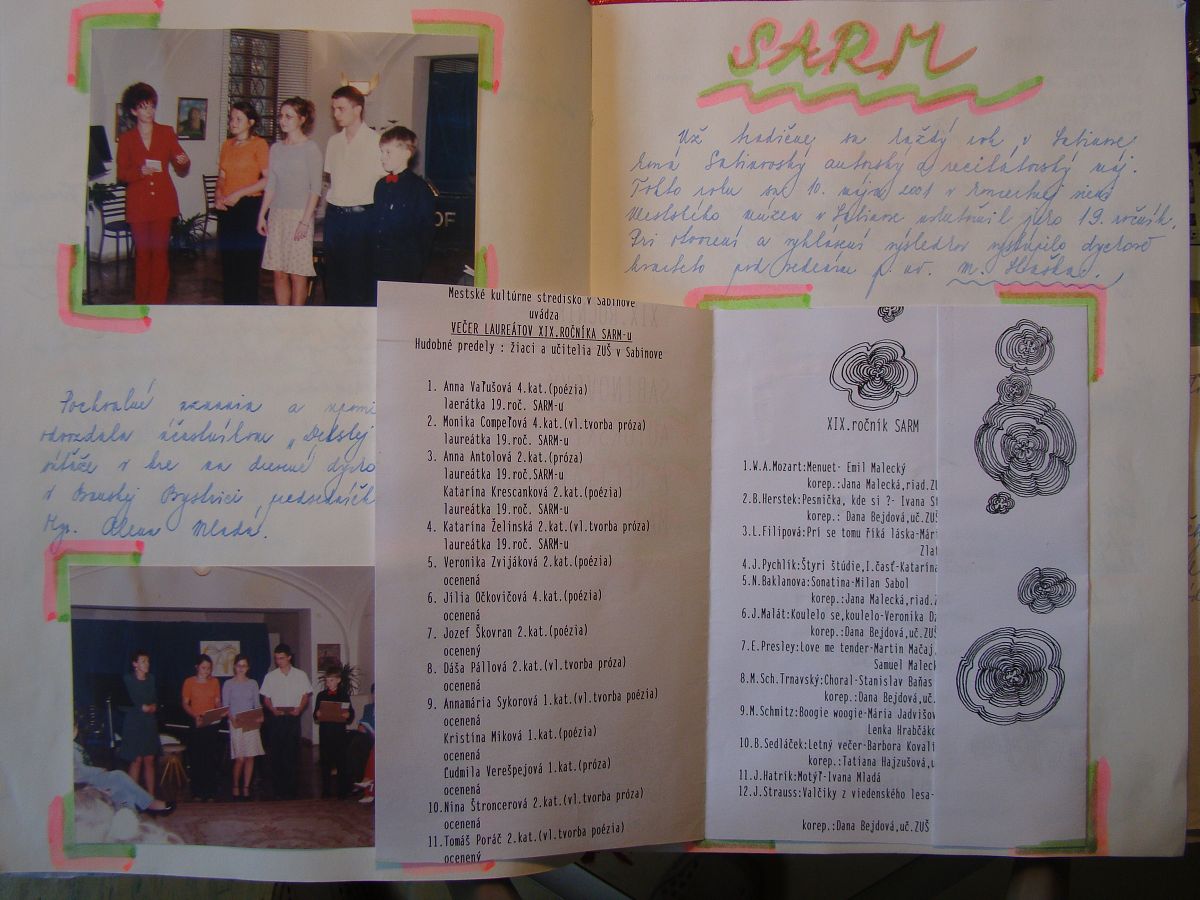 SARM
Už tradične sa každý rok v Sabinove
koná Sabinovský autorský a recitátorský máj.
Tohto roku sa 10. mája 2001 v koncertnej sieni
Mestského múzea v Sabinove uskutočnil jeho 19. ročník.
Pri otvorení a vyhlásení výsledkov vystúpilo dychové
kvarteto pod vedením p. uč. M. Hlaška.
Pochvalné uznania a
odovzdala účastníkom „Detskej
v hre na drevené dycho
v Banskej Bystrici
Mgr. Alena Mladá.
OF
Mestské kultúrne stredisko v Sabinove
uvádza
VEČER LAUREÁTOV XIX.ROČNÍKA SARM-u
Hudobné predely : žiaci a učitelia ZUŠ v Sabinove
1. Anna Vaľušová 4.kat.(poézia)
laerátka 19.roč. SARM-u
2. Monika Compeľová 4.kat.(vl.tvorba próza)
laureátka 19.roč. SARM-u
3. Anna Antolová 2.kat.(próza)
laureátka 19.roč.SARM-u
Katarína Krescanková 2.kat.(poézia)
laureátka 19.roč. SARM-u
4. Katarína Želinská 2.kat.(vl.tvorba próza)
laureátka 19.roč. SARM-u
5. Veronika Zvijáková 2.kat.(poézia)
ocenená
6. Jília Očkovičová 4.kat.(poézia)
ocenená
7. Jozef Škovran 2.kat.(poézia)
ocenený
8. Dáša Pállová 2.kat.(vl.tvorba próza)
ocenená
9. Annamária Sykorová 1.kat.(vl.tvorba próza)
ocenená
Kristína Miková 1.kat.(poézia)
ocenená
Ľudmila Verešpejová 1.kat.(próza)
ocenená
10.Nina Štroncerová 2.kat.(vl.tvorba próza)
ocenená
11.Tomáš Poráč 2.kat.(vl.tvorba poézia)
ocenený
XIX.ročník SARM
1.W.A.Mozart:Menuet- Emil Malecký
korep.:Jana Malecká,riad.ZU
2.B.Herstek:Pesnička, kde si ?- Ivana
korep.: Dana Bejdová,uč.ZUŠ
3.L.Filipová:Pri se tomu říká láska-Mári
Zlat
4.J.Pychlík:Štyri štúdie,I.časť-Katarína
5.N.Baklanova:Sonatina-Milan Sabol
korep.:Jana Malecká,riad.Z
6.J.Malát:Koulelo se,koulelo-Veronika
korep.:Dana Bejdová,uč.ZUŠ
7.E.Presley:Love me tender-Martin Mačaj,
Samuel Maleck
8.M.Sch.Trnavský:Choral-Stanislav Baňas
korep.:Dana Bejdová,uč.
9.M.Schmitz:Boogie woogie-Mária Jadvišov
Lenka Hrabčáko
10.B.Sedláček:Letný večer-Barbora Kovali
korep.:Tatiana Hajzušová,u
11.J.Hatrik:Motýľ-Ivana Mladá
12.J.Strauss:Valčíky z viedenského lesa-
korep.:Dana Bejdová,uč.ZUŠ